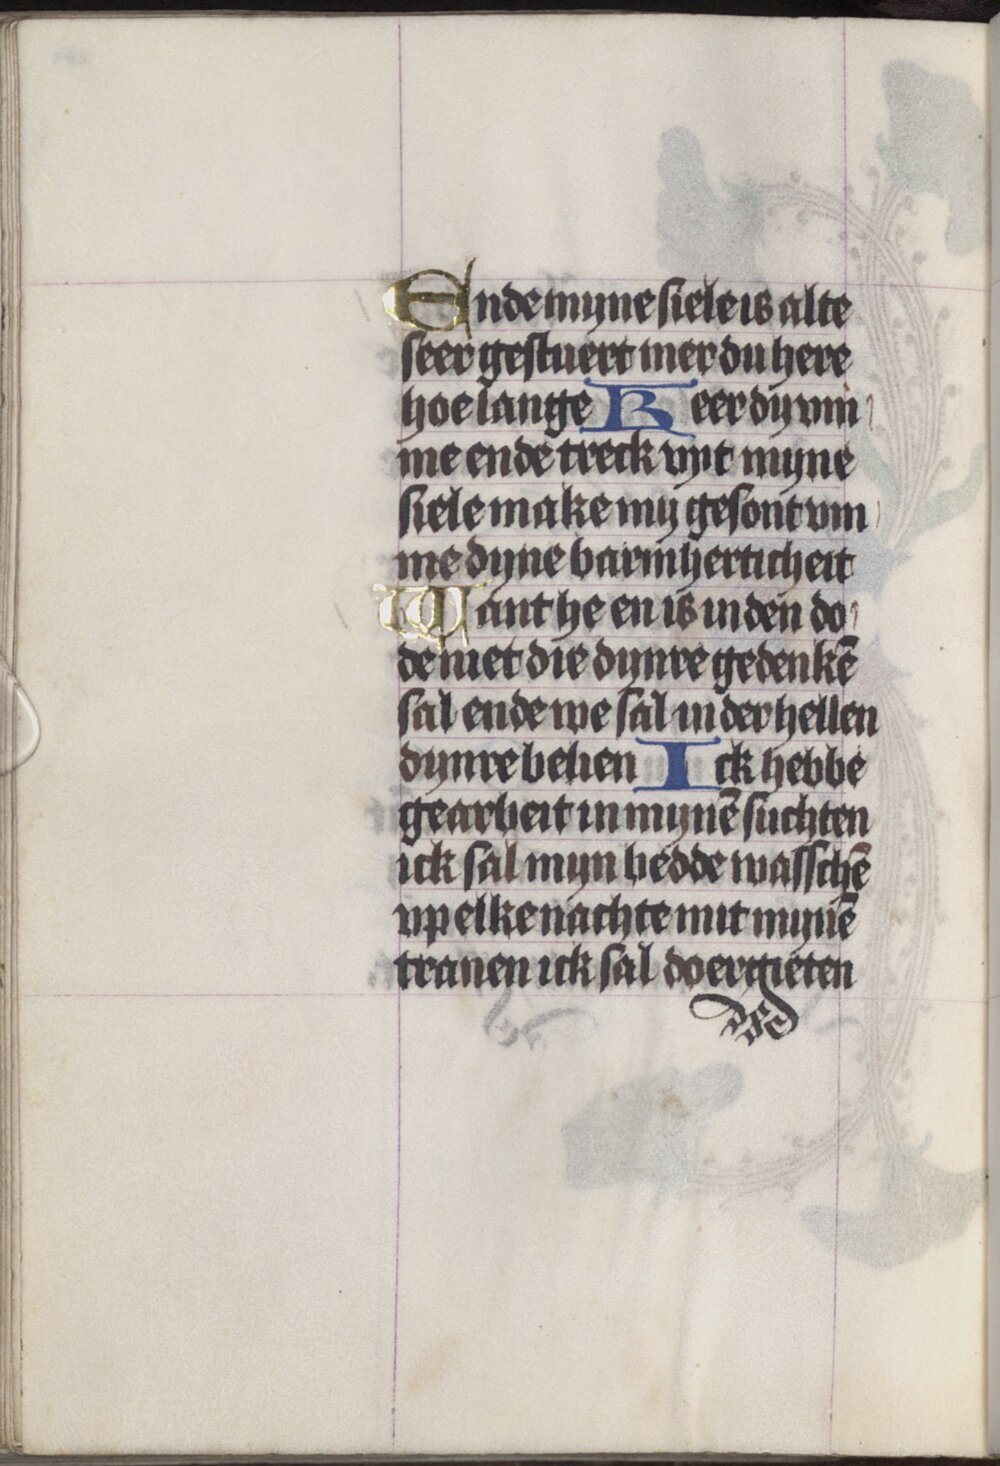 Ende myne siele is alte
seer gestuert mer du here
hoe lange Keer dy vm
me ende treck vyt myne
siele make my gesont vm
me dyne barmherticheit
Want he en is in den do
de niet die dynre gedenkē
sal ende we sal in der hellen
dynre belien Ick hebbe
gearbeit in mynē suchten
ick sal myn bedde wasschē
vp elke nachte mit mynē
tranen ick sal doergieten